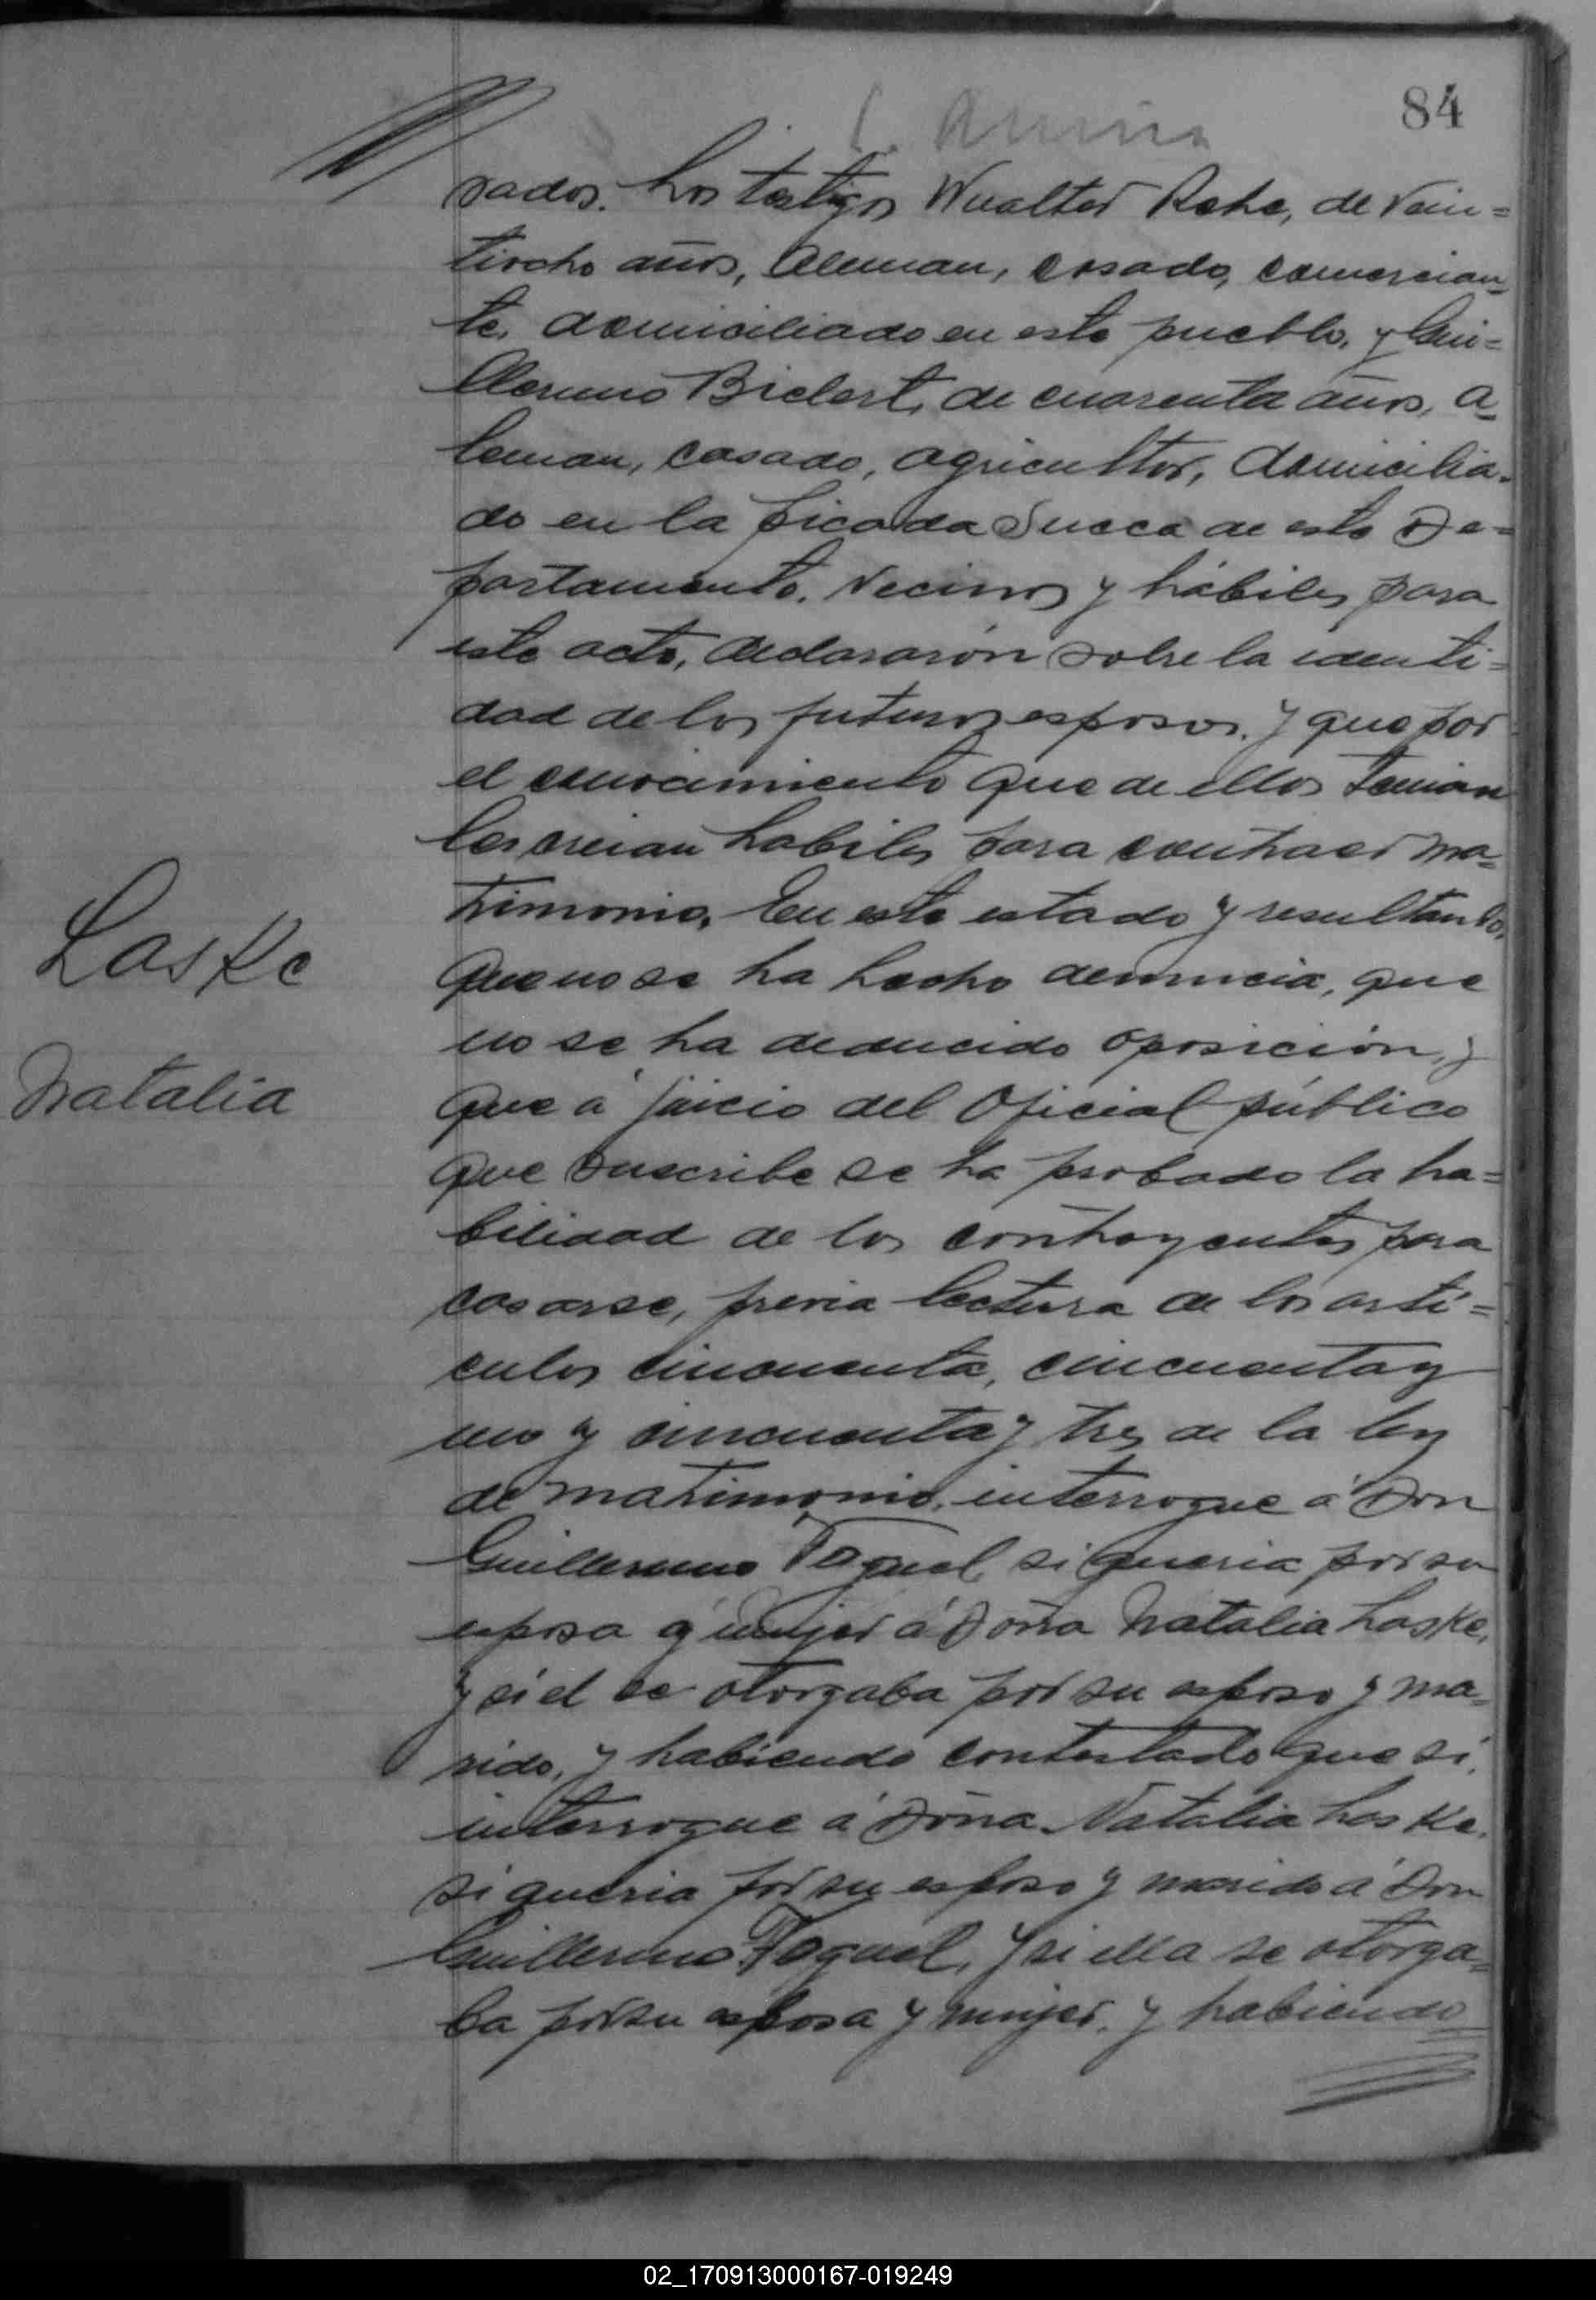 84
sados. Los testigos Wualter Rehe, de vein=
tiocho años, Aleman, casado, comercian
te, domiciliado en este pueblo, y Gui=
llermo Bielert, de cuarenta años, a
leman, casado, agricultor, domicilia-
do en la picada Sueca de este De-
partamento. Vecinos y hábiles para
este acto, declararón sobre la identi-
dad de los futuros esposos, y que por
el conocimiento que de ellos tenian
los creian habiles para contraer ma-
trimonio. En este estado y resultando,
que no se ha hecho denuncia, que
no se ha deducido oposición, y
que á juicio del Oficial público
que suscribe se ha probado la ha=
bilidad de los contrayentes para
casarse, previa lectura de los artí=
culos cincuenta, cincuenta y
uno y cincuenta y tres de la ley
de matrimonio, interrogue á Don
Guillermo Foguel, si queria por su
esposa y mujer á Doña Natalia Laske,
y si el se otorgaba por su esposo y ma-
rido, y habiendo contestado que sí,
interrogue á Doña Natalia Laske,
si queria por su esposo y marido á Don
Guillermo Foguel, y si ella se otorga=
ba por su esposa y mujer, y habiendo
Laske
Natalia
02_170913000167-019249